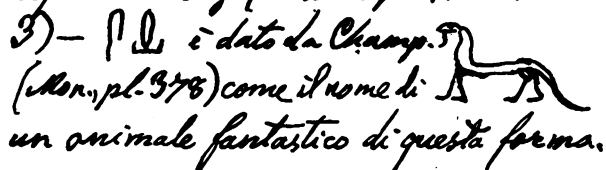 3) — 𓋴𓍑 è dato da Champ.
(Mon., pl. 378) come il nome di
un animale fantastico di questa forma.